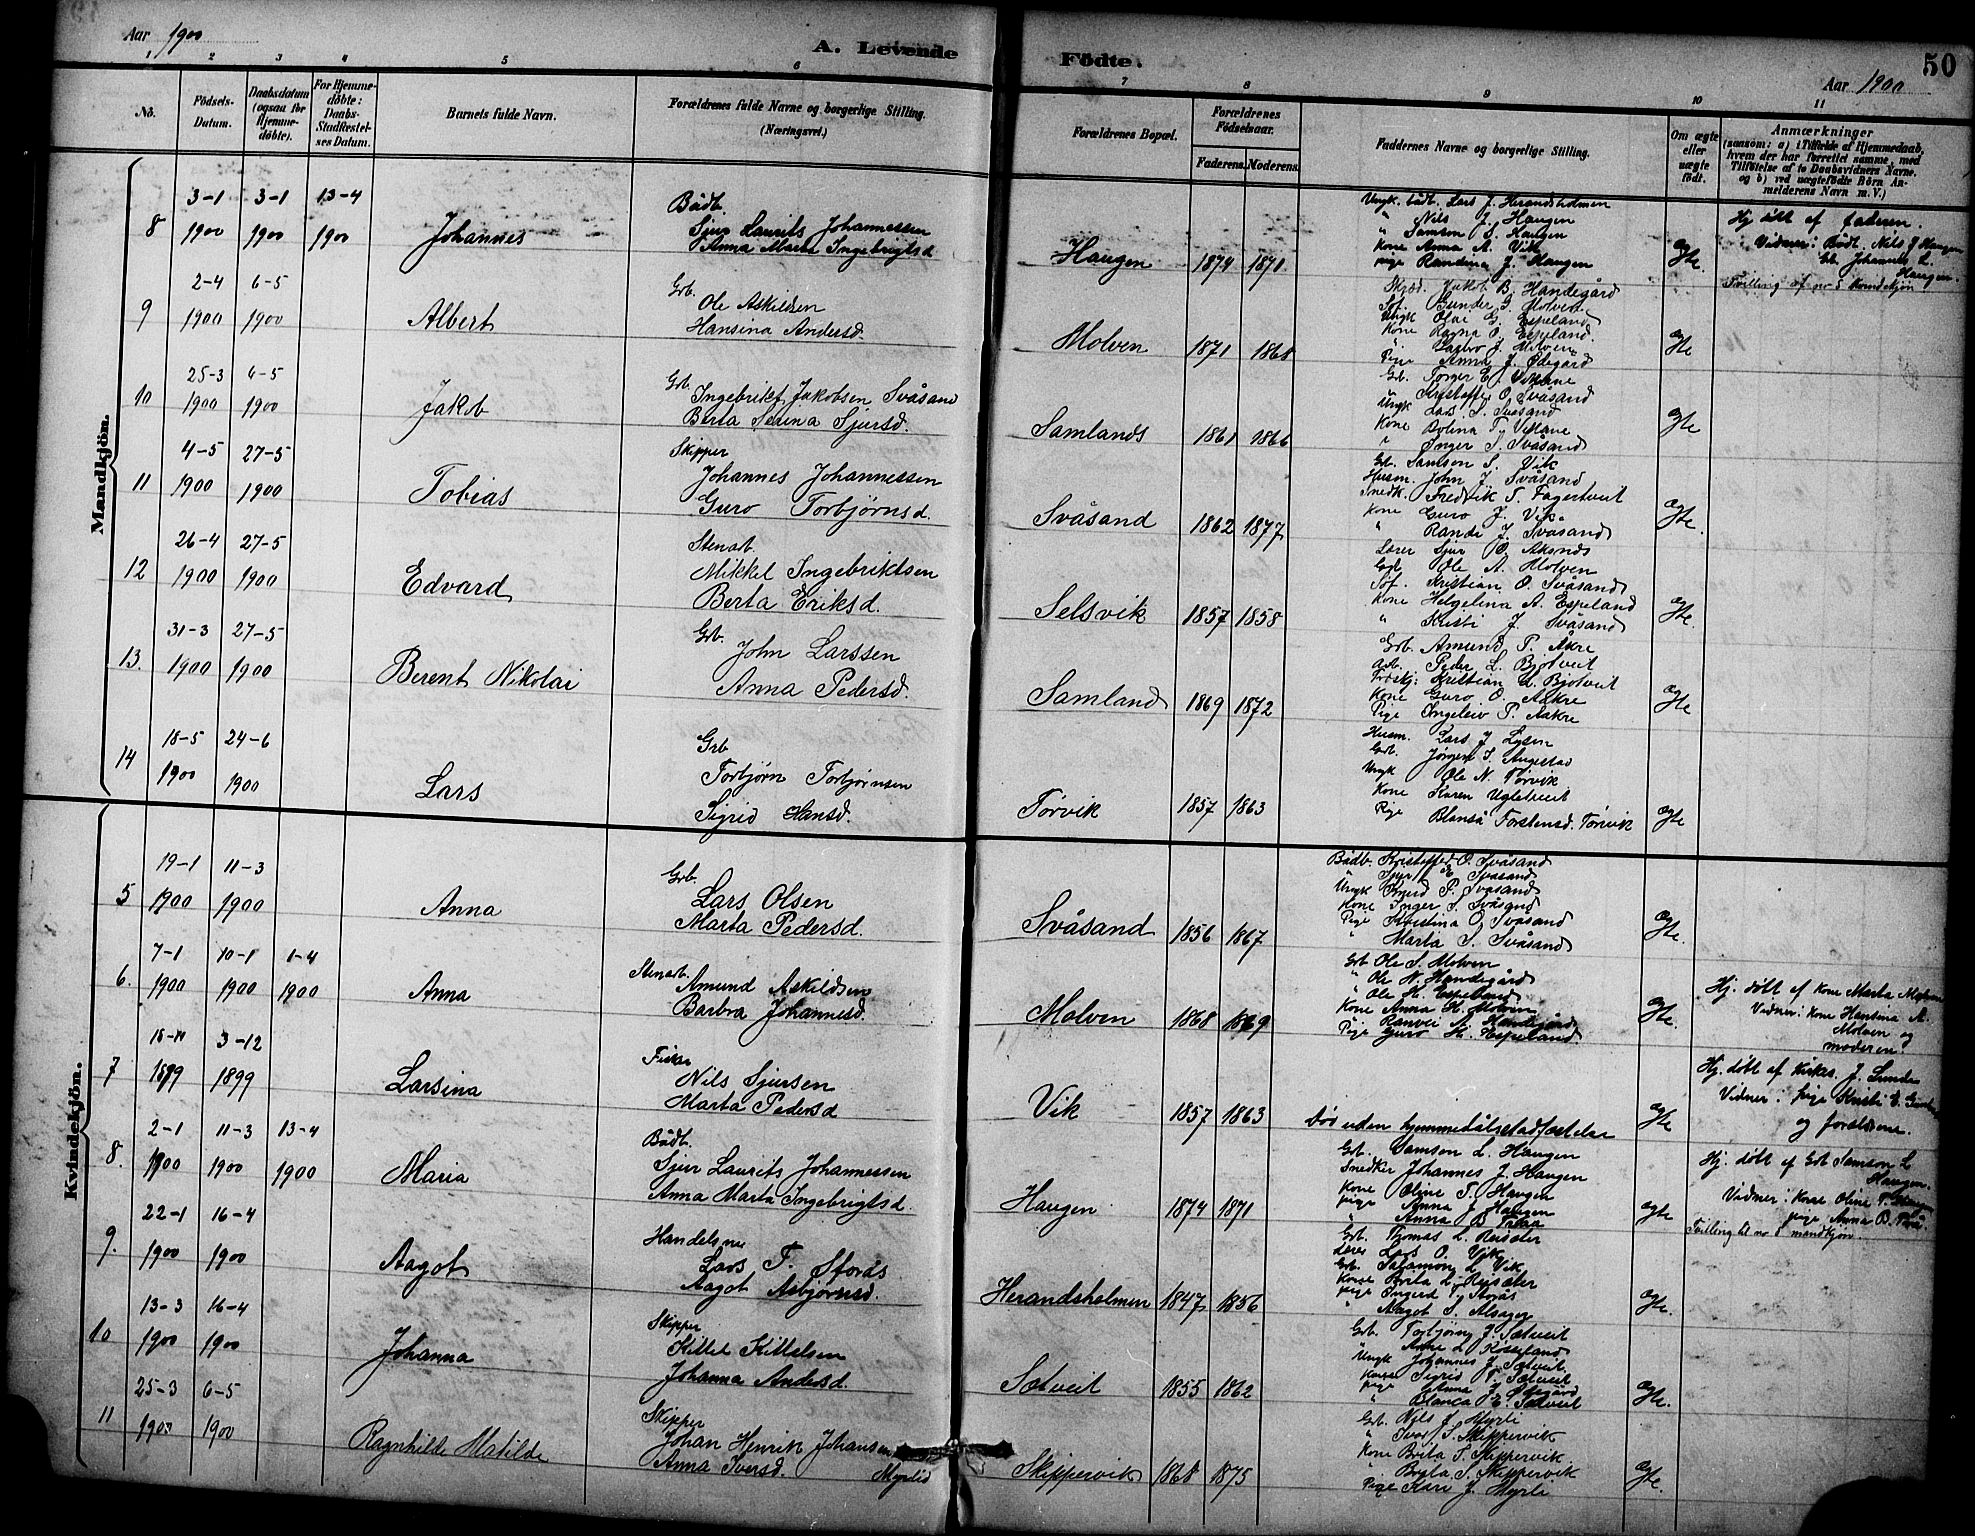 Aar 1900
A. Levende
Fødte.
Aar 1900
50
1 2 3 4 5 6 7 8 9 10 11
No.
Fødsels-Datum.
Daabsdatum (ogsaa for Hjemmedøbte).
For Hjemmedøbte: Daabs-Stadfæstelses Datum.
Barnets fulde Navn.
Forældrenes fulde Navne og borgerlige Stilling. (Næringsvei.)
Forældrenes Bopæl.
Forældrenes Fødselsaar.
Faderens. Moderens.
Faddernes Navne og borgerlige Stilling.
Om ægte eller uægte født.
Anmærkninger
(saasom: a) i Tilfælde af Hjemmedaab, hvem der har forrettet samme, med Tilføielse af to Daabsvidners Navne. og b) ved uægtefødte Børn Anmelderens Navn m. V.)
Mandkjøn.
8 3-1 1900 3-1 1900 13-4 1900 Johannes
Bådb.
Sjur Laurits Johannessen
Anna Marta Ingebrigtsd
Haugen 1874 1871
Ungk. bådb. Lars J. Herandsholmen
" Nils J. Haugen
" Samson S. Haugen
Kone Anna A. Vik
pige Randina J. Haugen
Ægte.
Hj. døbt af faderen.
Vidner: Bådb. Nils J Haugen
Gb. Johannes L. Haugen.
Tvilling af no 8 kvindekjøn
9 2-4 1900 6-5 1900 Albert
Grb.
Ole Askildsen
Hansina Andersd.
Molven 1871 1868
Jakob B. Handegård
Gunder G. Molven
Ungk Olai G. Espeland
Kone Ragna O. Espeland.
" J. Molven
Pige Anna J. Ødegård
Ægte
10 25-3 1900 6-5 1900 Jakob
Grb.
Ingebrikt Jakobsen Svåsand
Berta Serina Sjursd.
Samlands 1861 1866
Gb. Torger E. Vikane
Kristoffer O. Svåsand
Ungk Lars S. Svåsand
Kone Bolina T. Vikane
" Inger S. Svåsand
Ægte
11 4-5 1900 27-5 1900 Tobias
Skipper
Johannes Johannessen
Guro Torbjørnsd.
Svåsand 1862 1877
Gb. Samson S. Vik
Husm. John J. Svåsand
Snedk. Fredrik T. Fagertveit
Kone Guro J. Vik
" Randi J. Svåsand
Ægte.
12 26-4 1900 27-5 1900 Edvard
Stenarb.
Mikkel Ingebriktsen
Berta Eriksd.
Selsvik 1857 1858
Lærer Sjur O. Aksnes
Ole A. Molven
Kristian O. Svåsand
Kone Helgelina A. Espeland
" Kristi J. Svåsand
Ægte.
13. 31-3 1900 27-5 1900 Berent Nikolai
Grb.
John Larssen
Anna Pedersd.
Samland 1869 1872
Grb. Amund P. Åkre
Arb. Peder L. Bjotveit
Kristian L. Bjotveit
Kone Guro O. Aakre
Pige Ingeleiv P. Aakre
Ægte
14 18-5 1900 24-6 1900 Lars
Grb
Torbjørn Torbjørnsen
Sigrid Hansd.
Tørvik 1857 1863
Husm. Lars J Lysen
Grb. Jørgen S. Augestad
Ungk Ole N. Tørvik
Kone Karen Ugletveit
Pige Blansa Torstensd. Tørvik
Ægte
Kvindekjøn.
5 19-1 1900 11-3 1900 Anna
Grb.
Lars Olsen
Marta Pedersd.
Svåsand 1856 1867
Bådb. Kristoffer O. Svåsand
" Sjur E Svåsand
Ungk Knud P. Svåsand
Kone Inger S. Svåsand
Pige Kristina O. Svåsand
" Marta S. Svåsand
Ægte.
6. 7-1 1900 10-1 1900 1-4 1900 Anna
Stenarb.
Amund Askildsen
Barbra Johannesd.
Molven 1868 1869
Grb Ole S. Molven
" Ole N. Handegård
" Ole H. Espeland
Kone Anna H. Molven
Pige Ranvei M. Handegård
Pige Guro H. Espeland.
Ægte.
Hj. døbt af Kone Marta Molven
Vidner: Kone Hansina A. Molven og moderen.
7 18-11 1899 3-12 1899 Larsina
Fisker
Nils Sjursen
Marta Pedersd
Vik 1857 1863
Død uden hjemmedåbsstadfæstelse
Ægte
Hj. døbt af Kirkes. J. Lunde
Vidner: pige Kristi
og forældrene.
8. 2-1 1900 11-3 1900 13-4 1900 Maria
Bådb.
Sjur Laurits Johannessen
Anna Marta Ingebrigtsd.
Haugen 1874 1871
Grb. Samson L. Haugen
Snedker Johannes J Haugen
Kone Oline T. Haugen
pige Anna J Haugen
" Anna B
Ægte
Hj. døbt af Grb Samson L Haugen.
Vidner: Kone Oline T. Haugen
pige Anna B.
Tvilling til no 8 mandkjøn.
9. 22-1 1900 16-4 1900 Aagot
Handelsm
Lars T. Storås
Aagot Asbjørnsd.
Herandsholmen 1847 1856
Grb. Thomas L. Reisæter
Lærer Lars O. Vik
Grb. Salamon L. Vik
Kone Brita L. Reisæter
pige Ingerid T. Storås
" Aagot S. Alsager
Ægte.
10 13-3 1900 16-4 1900 Johanna
Skipper
Kittel Kittelsen
Johanna Andersd.
Sætveit 1855 1862
Grb. Torbjørn J. Sætveit
Ungk Johannes J. Sætveit
Kone Sigrid T. Sætveit
pige Anna J.
" Blanca E. Sætveit
Ægte.
11 25-3 1900 6-5 1900 Ragnhilde Matilde
Skipper
Johan Henrik Johansen
Anna Iversd. Myrlid
Skippervik 1868 1875
Grb. Nils J. Myrli
" Ivar S. Skippervik
Kone Brita T. Skippervik
" Brita S. Skippervik
Pige Kari J. Myrli
Ægte.